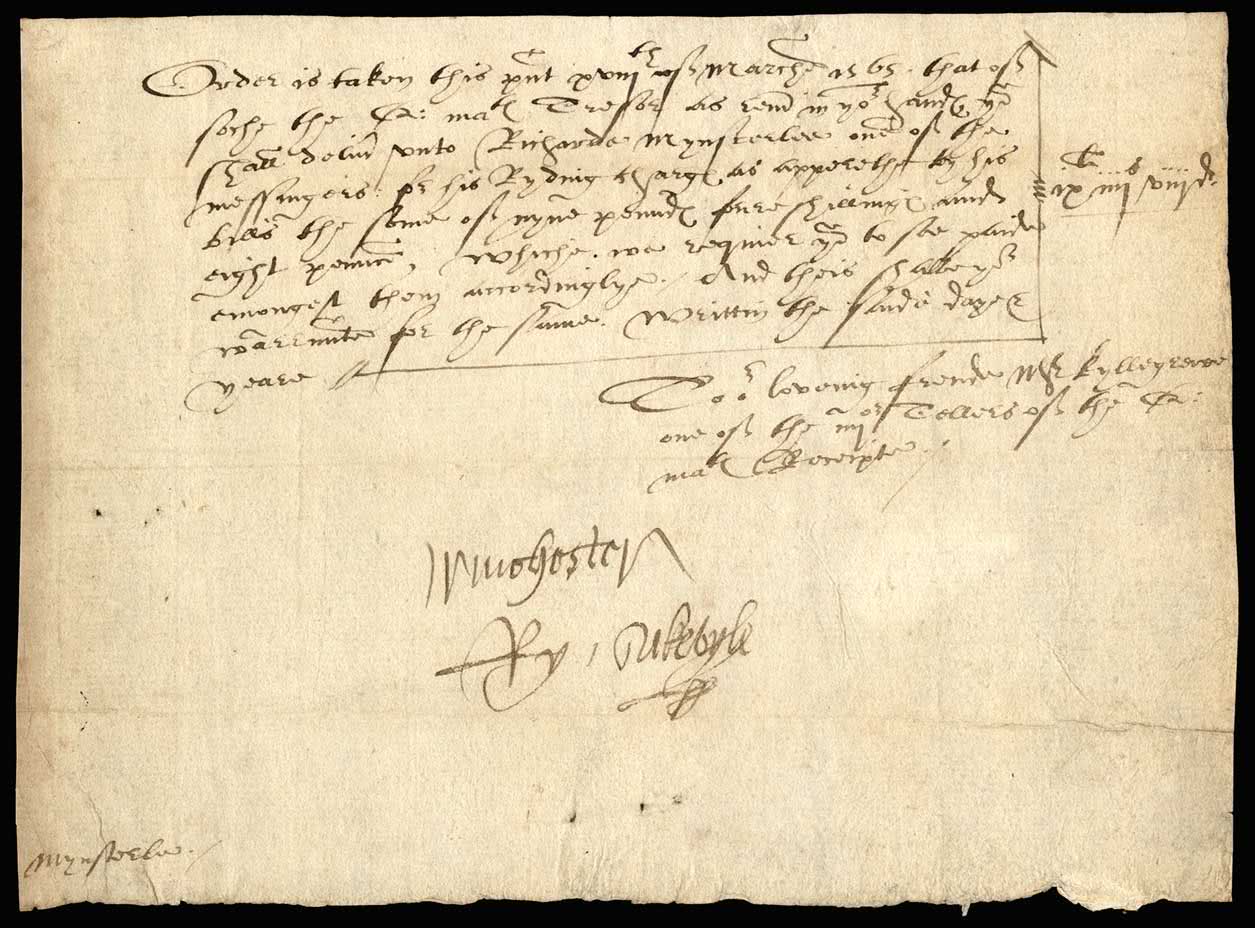 Order is taken this pnt xviijth of Marche 1565. that of
soche the Q: mats Tresor as remth in yor hands ye
shall deliver unto Richarde Mynsterlee one of the
messingers for his Ryding chargs as apperethe by his
bills the some of nyne pounds foure shillings and
eight pennce, Whiche we requier ye to see paide
emongest them accordinglye. And theis shalbe yor
warraunte for the same. Writtin the saide daye &
yeare
li s d
ix iiij viij
To or lovinig frende Mr Kyllegrewe
one of the iiijor Tellers of the Q:
mats Receipte
Winchester
Ry: Sakevyle
Mynsterlee.